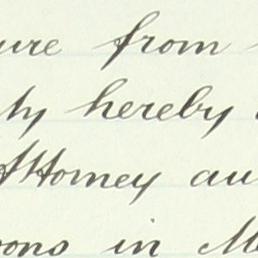 ure from
ly hereby
Attorney au
oons in M